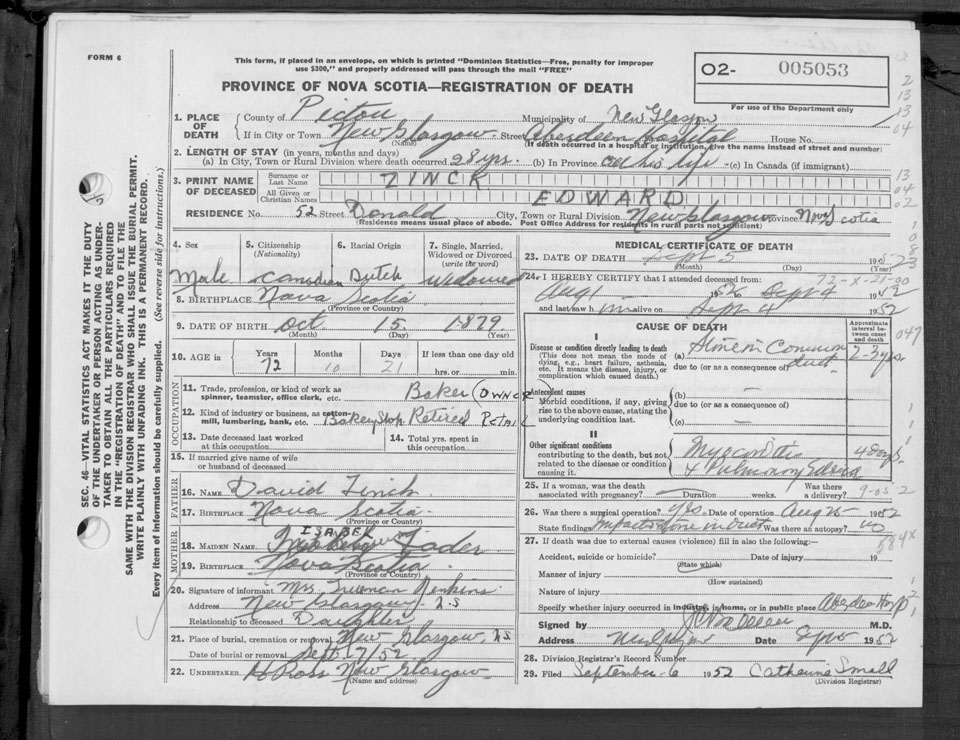 FORM 6
This form, if placed in an envelope, on which is printed "Dominion Statistics—Free, penalty for improper
use $300," and properly addressed will pass through the mail "FREE"
PROVINCE OF NOVA SCOTIA—REGISTRATION OF DEATH
O2- 005053
For use of the Department only
1. PLACE OF DEATH
County of Pictou Municipality of New Glasgow
If in City or Town New Glasgow Street Aberdeen Hospital House No.
(Name) (If death occurred in a hospital or institution, give the name instead of street and number)
2. LENGTH OF STAY (in years, months and days)
(a) In City, Town or Rural Division where death occurred 28 yrs. (b) In Province all his life (c) In Canada (if immigrant)
3. PRINT NAME OF DECEASED
Surname or Last Name ZINCK
All Given or Christian Names EDWARD
RESIDENCE No. 52 Street Donald City, Town or Rural Division New Glasgow Province Nova Scotia
(Residence means usual place of abode. Post Office Address for residents in rural parts not sufficient)
4. Sex
Male
5. Citizenship (Nationality)
Canadian
6. Racial Origin
Dutch
7. Single, Married, Widowed or Divorced (write the word)
widowed
8. BIRTHPLACE Nova Scotia
(Province or Country)
9. DATE OF BIRTH Oct. 15. 1879
(Month) (Day) (Year)
10. AGE in Years Months Days If less than one day old
72 10 21 hrs. or min.
OCCUPATION
11. Trade, profession, or kind of work as
spinner, teamster, office clerk, etc. Baker (OWNER
12. Kind of industry or business, as cotton-
mill, lumbering, bank, etc. Bakery Shop Retired RETAIL
13. Date deceased last worked
at this occupation
14. Total yrs. spent in
this occupation
15. If married give name of wife
or husband of deceased
FATHER
16. NAME David Zinck
17. BIRTHPLACE Nova Scotia
(Province or Country)
MOTHER
ISABEL
18. MAIDEN NAME Fader
19. BIRTHPLACE Nova Scotia
(Province or Country)
20. Signature of informant Mrs. Freeman Jenkins
Address New Glasgow N.S
Relationship to deceased Daughter
21. Place of burial, cremation or removal New Glasgow N.S.
Date of burial or removal Sept. 7/52
22. UNDERTAKER H Ross New Glasgow
(Name and address)
MEDICAL CERTIFICATE OF DEATH
23. DATE OF DEATH Sept 5 1952
(Month) (Day) (Year)
24. I HEREBY CERTIFY that I attended deceased from:
Aug 1 1952 to Sept 4 1952
and last saw h im alive on Sept 4 1952
CAUSE OF DEATH
Approximate interval between onset and death
I
Disease or condition directly leading to death
(This does not mean the mode of
dying, e.g., heart failure, asthenia,
etc. It means the disease, injury, or
complication which caused death.)
(a) Stone in Common duct 2-3 yrs
due to (or as a consequence of)
Antecedent causes
Morbid conditions, if any, giving
rise to the above cause, stating the
underlying condition last.
(b) —
due to (or as a consequence of)
(c) —
II
Other significant conditions
contributing to the death, but not
related to the disease or condition
causing it.
Myocarditis
& Pulmonary Edema
4 days
25. If a woman, was the death
associated with pregnancy? Duration weeks. Was there a delivery?
26. Was there a surgical operation? yes Date of operation Aug 25 1952
State findings Impacted stone in duct Was there an autopsy? no
27. If death was due to external causes (violence) fill in also the following:—
Accident, suicide or homicide? Date of injury 19
(State which)
Manner of injury
(How sustained)
Nature of injury
Specify whether injury occurred in industry, in home, or in public place Aberdeen Hosp
Signed by M.D.
Address New Glasgow Date Sept 5 1952
28. Division Registrar's Record Number
29. Filed September 6 1952 Catharine Small
(Division Registrar)
SEC. 46—VITAL STATISTICS ACT MAKES IT THE DUTY
OF THE UNDERTAKER OR PERSON ACTING AS UNDER-
TAKER TO OBTAIN ALL THE PARTICULARS REQUIRED
IN THE "REGISTRATION OF DEATH" AND TO FILE THE
SAME WITH THE DIVISION REGISTRAR WHO SHALL ISSUE THE BURIAL PERMIT.
WRITE PLAINLY WITH UNFADING INK. THIS IS A PERMANENT RECORD.
Every item of information should be carefully supplied. (See reverse side for instructions.)